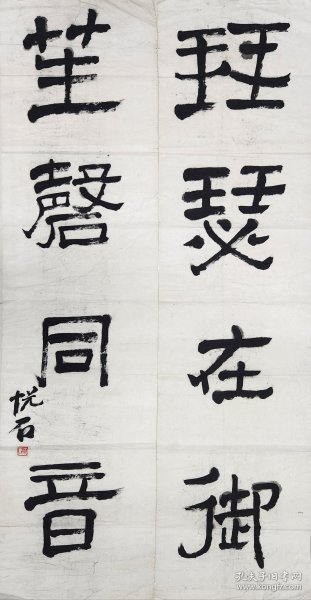 琴瑟在御
笙磬同音
悦石
孔夫子旧书网
www.kongfz.com